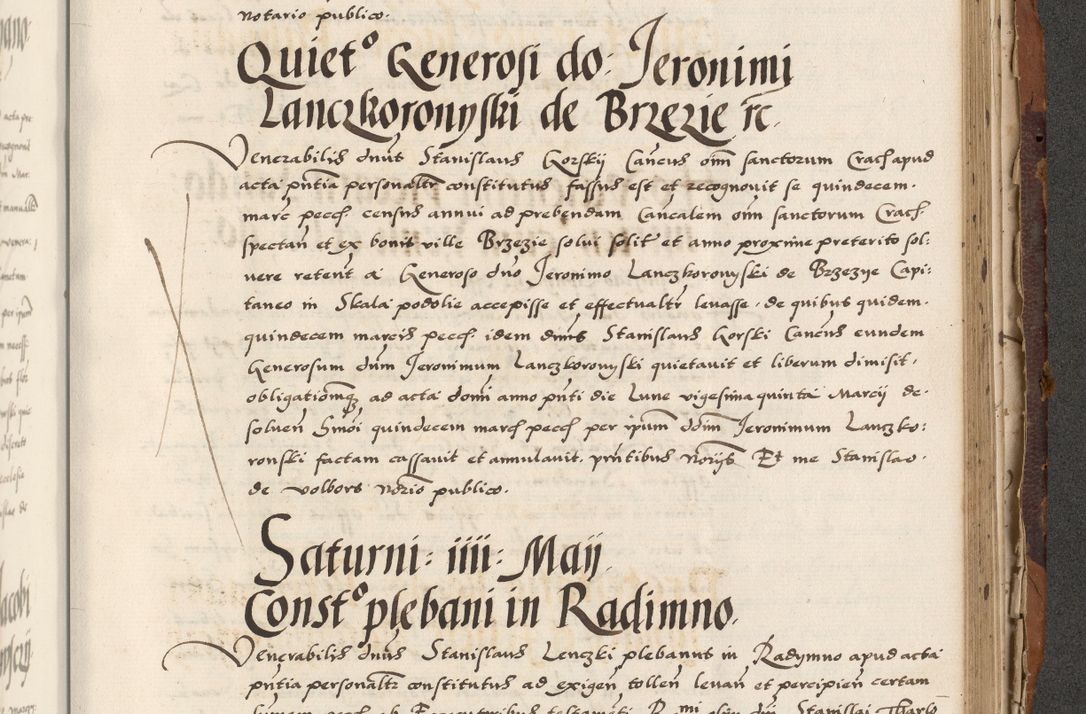 notario publico.
Quiet° Generosi do: Jeronimi
Lanczkoronyski de Brzezie rc.
Venerabilis dnus Stanislaus Gorskij Cancus oim sanctorum Crac apud
acta pntia personaltr constitutus fassus est et recognovit se quindecem
marc pecc census annui ad prebendam Cancalem oim sanctorum Crac
spectan et ex bonis ville Brzezie solui solit et anno proxime preterito sol:
uere retent a Generoso dno Jeronimo Lanczkoronyski de Brzezye Capi:
taneo in Skala podolie accepisse et effectualtr levasse. de quibus quidem
quindecem marcis pecc idem dnus Stanislaus Gorski Cancus eundem
Generosum dnm Jeronimum Lanczkoronyski quietavit et liberum dimisit.
obligationemq ad acta domi anno pnti die Lune vigesima quinta Marcij de
soluen Smoi quindecem marc pecc per ipsum ddim Jeronimum Lanczko:
ronski factam cassavit et annulavit. pntibus Norijs Et me Stanislao
de volbors Nario publico.
Saturni: iiii: Maij
Const° plebani in Radimno.
Venerabilis dnus Stanislaus Lenczki plebanus in Radymno apud acta
pntia personaltr constitutus ad exigen tollen levan et percipien certam